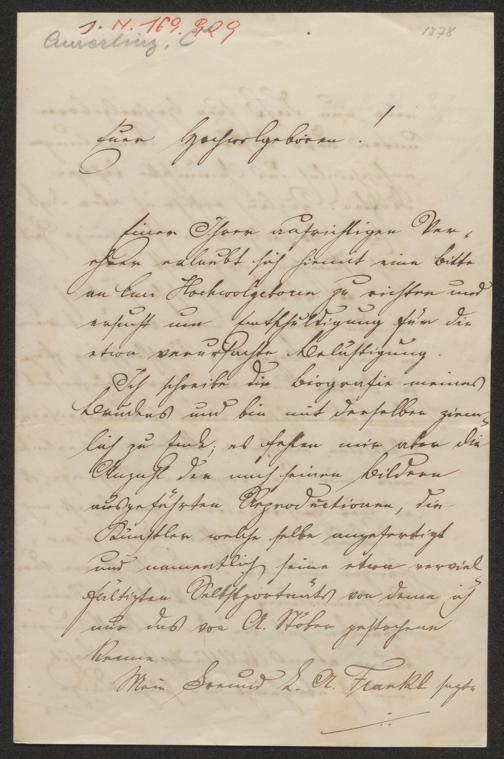 J. N. 169.829
Amerling, C
1878
Euer Hochwolgeboren!
Einer Ihrer aufrichtigen Ver-
ehrer erlaubt sich hiemit eine Bitte
an Euer Hochwolgeboren zu richten und
ersucht um Entschuldigung für die
etwa verursachte Belästigung.
Ich schreibe die Biografie meines
Bruders und bin mit derselben ziem-
lich zu Ende; es fehlen mir aber die
Anzahl der nach seinen Bildern
ausgeführten Reproductionen, die
Künstler welche selbe angefertigt
und namentlich seine etwa verviel-
fältigten Selbstporträts von denen ich
nur das von A. Stöber gestochene
kenne.
Mein Freund L. A. Frankl sagte